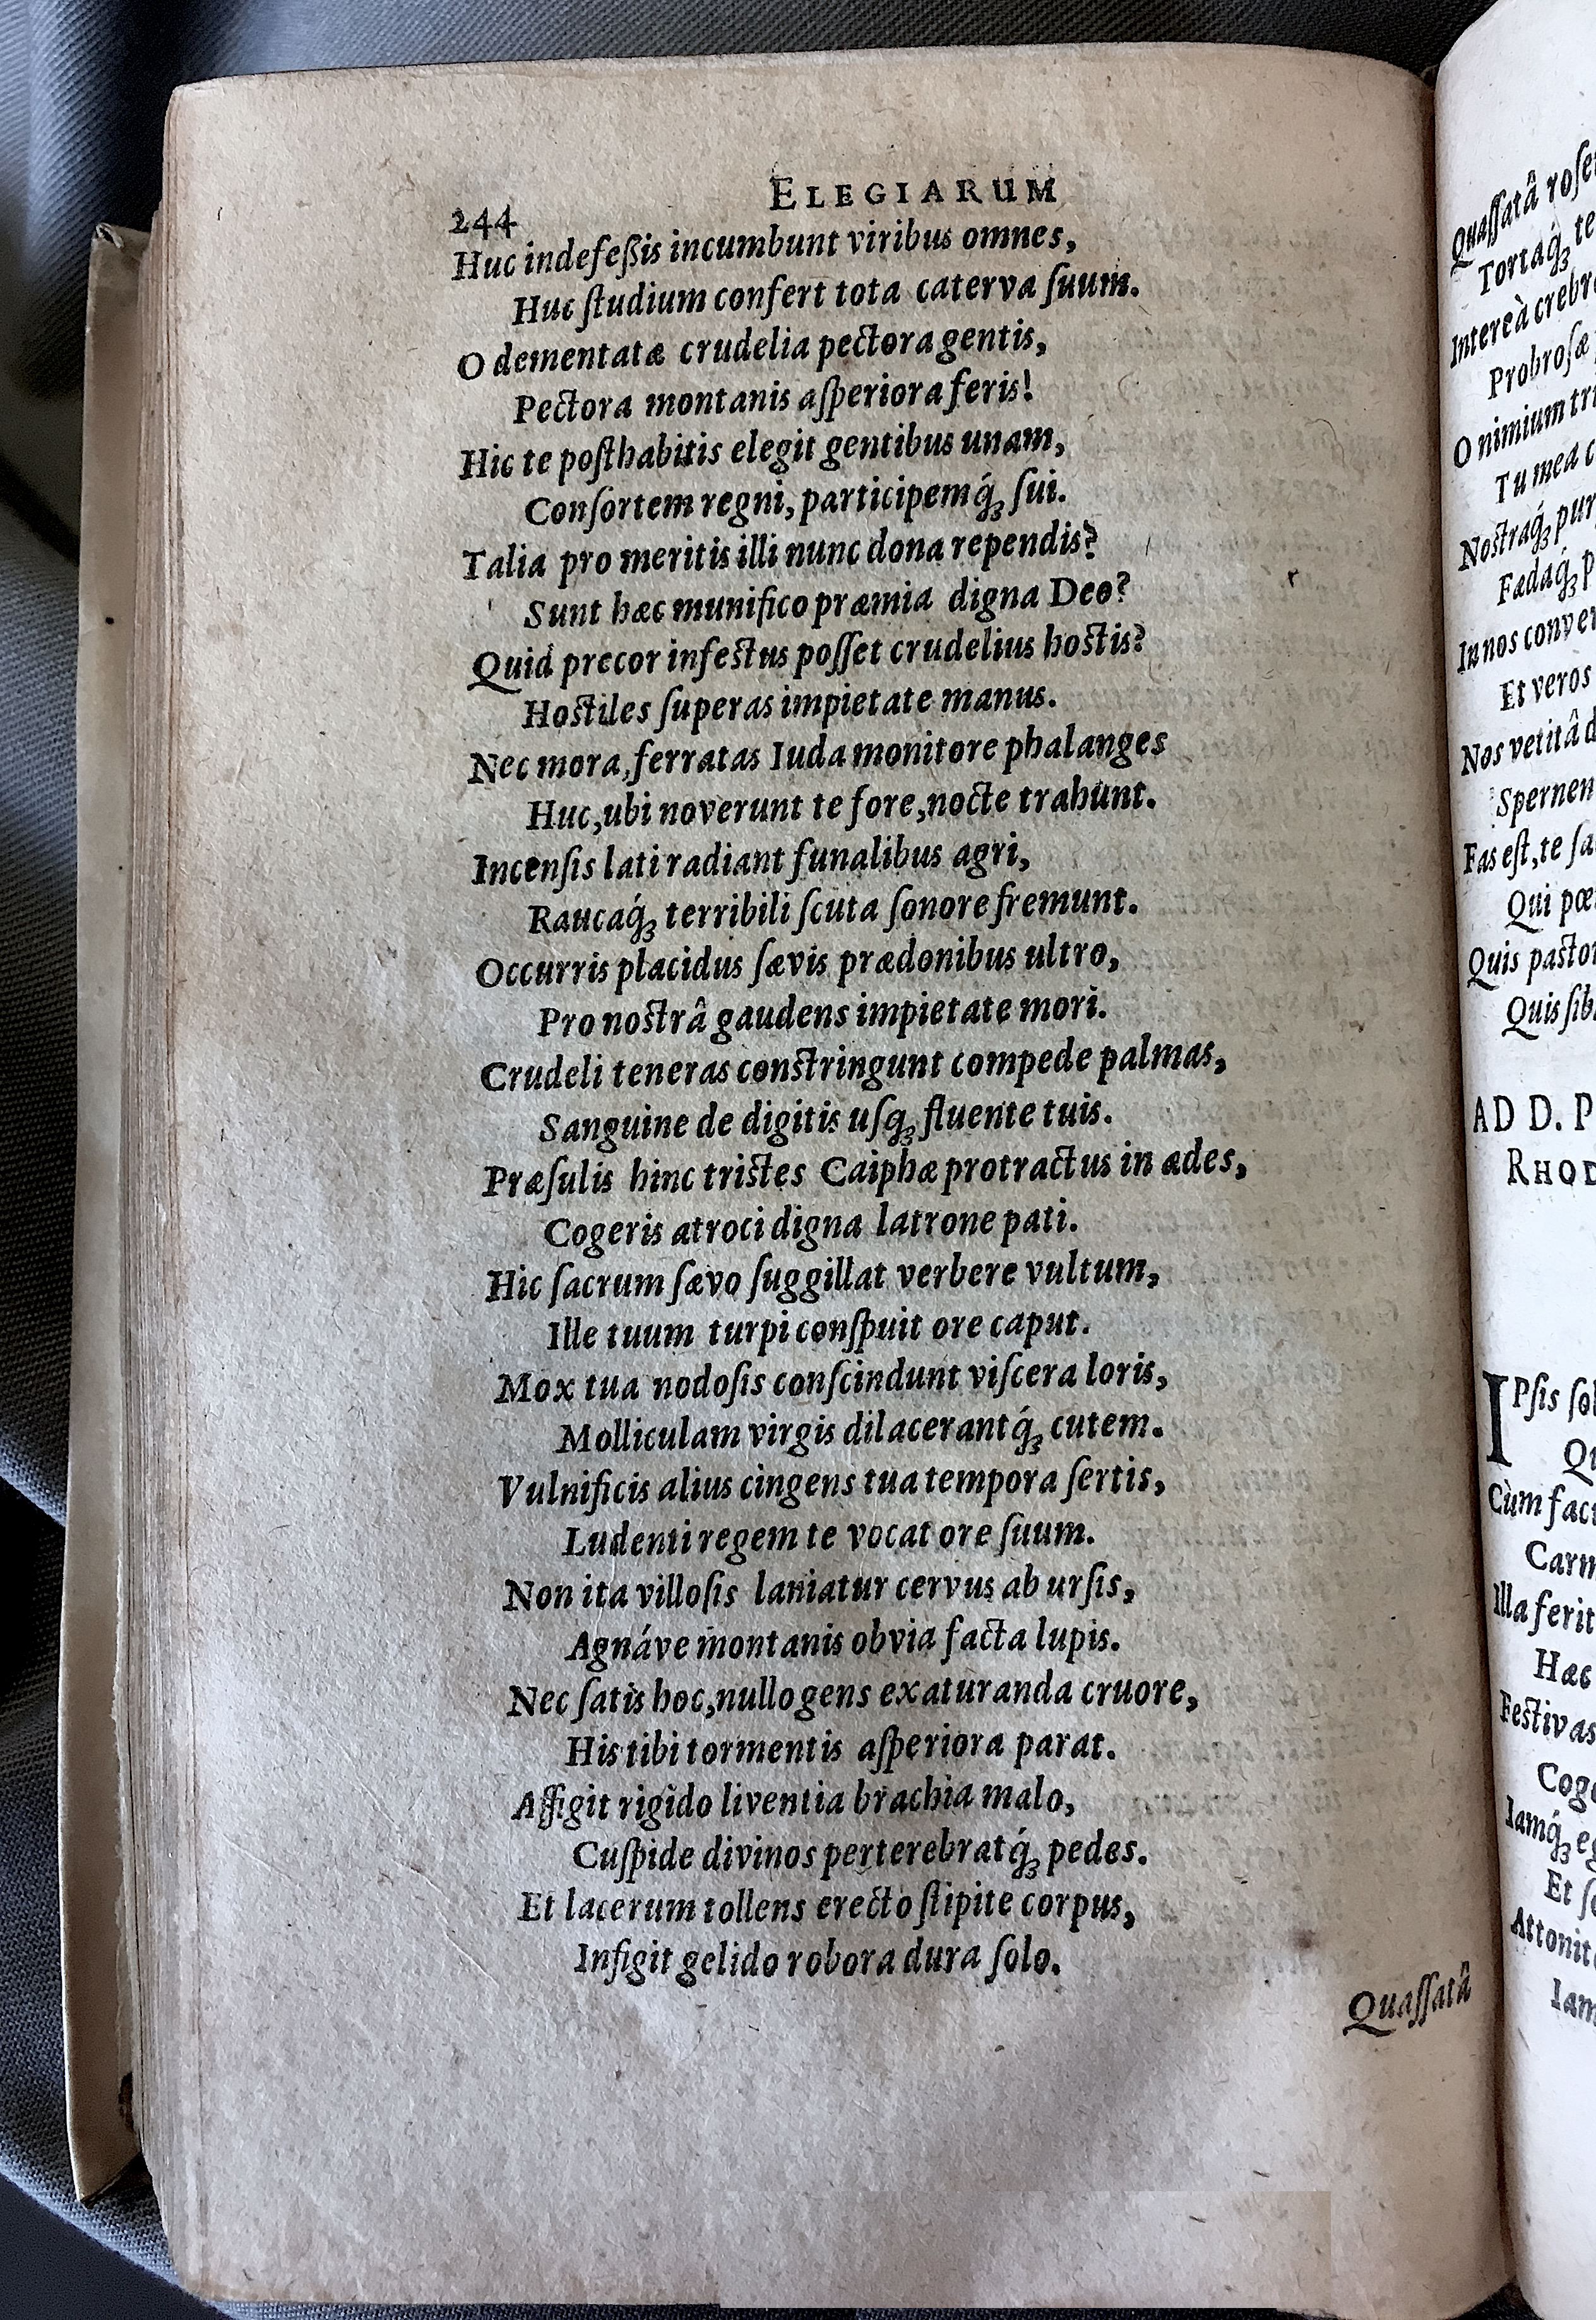 244 ELEGIARUM
Huc indefeßis incumbunt viribus omnes,
Huc ſtudium confert tota caterva ſuum.
O dementatæ crudelia pectora gentis,
Pectora montanis aſperiora feris!
Hic te poſthabitis elegit gentibus unam,
Conſortem regni, participemq́ꝫ ſui.
Talia pro meritis illi nunc dona rependis?
Sunt hæc munifico præmia digna Deo?
Quid precor infestus poſſet crudelius hostis?
Hostiles ſuperas impietate manus.
Nec mora, ferratas Iuda monitore phalanges
Huc, ubi noverunt te fore, nocte trahunt.
Incenſis lati radiant funalibus agri,
Raucaq́ꝫ terribili ſcuta ſonore fremunt.
Occurris placidus ſævis prædonibus ultro,
Pro nostrâ gaudens impietate mori.
Crudeli teneras constringunt compede palmas,
Sanguine de digitis uſqꝫ fluente tuis.
Præſulis hinc tristes Caiphæ protractus in ædes,
Cogeris atroci digna latrone pati.
Hic ſacrum ſævo ſuggillat verbere vultum,
Ille tuum turpi conſpuit ore caput.
Mox tua nodoſis conſcindunt viſcera loris,
Molliculam virgis dilacerantq́ꝫ cutem.
Vulnificis alius cingens tua tempora ſertis,
Ludenti regem te vocat ore ſuum.
Non ita villoſis laniatur cervus ab urſis,
Agnáve montanis obvia facta lupis.
Nec ſatis hoc, nullo gens exaturanda cruore,
His tibi tormentis aſperiora parat.
Affigit rigido liventia brachia malo,
Cuſpide divinos perterebratq́ꝫ pedes.
Et lacerum tollens erecto ſtipite corpus,
Infigit gelido robora dura ſolo.
Quaſſatâ
Quaſſatâ
Tortaq́ꝫ
Intereà
Probroſæ
O nimium
Tu mea
Nostraq́ꝫ
Fædaq́ꝫ
In nos
Et veros
Nos vetitâ
Fas eſt, te
Qui
Quis
Quis
AD D. P
IPſis
Cùm
Illa ferit
Hæc
Festivas
Iamq́ꝫ
Et